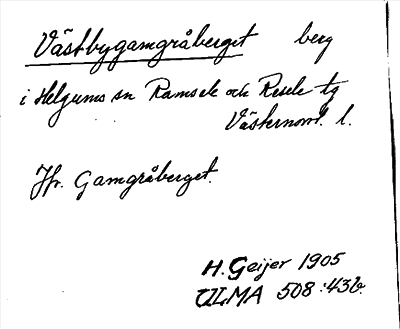 Västbygamgråberget berg
i Helgums sn Ramsele och Resele tg
Västernorrl. l.
Jfr. Gamgråberget.
H. Geijer 1905
ULMA 508:43b.